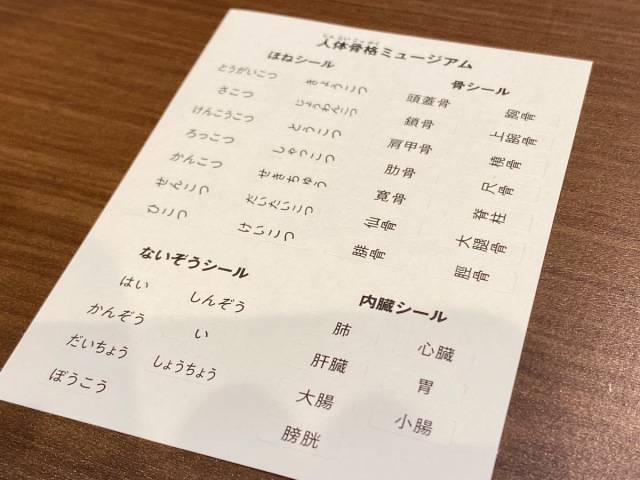 じんたいこっかく
人体骨格ミュージアム
ほねシール
とうがいこつ きょうこつ
さこつ じょうわんこつ
けんこうこつ とうこつ
ろっこつ しゃっこつ
かんこつ せきちゅう
せんこつ だいたいこつ
ひこつ けいこつ
骨シール
頭蓋骨 胸骨
鎖骨 上腕骨
肩甲骨 橈骨
肋骨 尺骨
寛骨 脊柱
仙骨 大腿骨
腓骨 脛骨
ないぞうシール
はい しんぞう
かんぞう い
だいちょう しょうちょう
ぼうこう
内臓シール
肺 心臓
肝臓 胃
大腸 小腸
膀胱